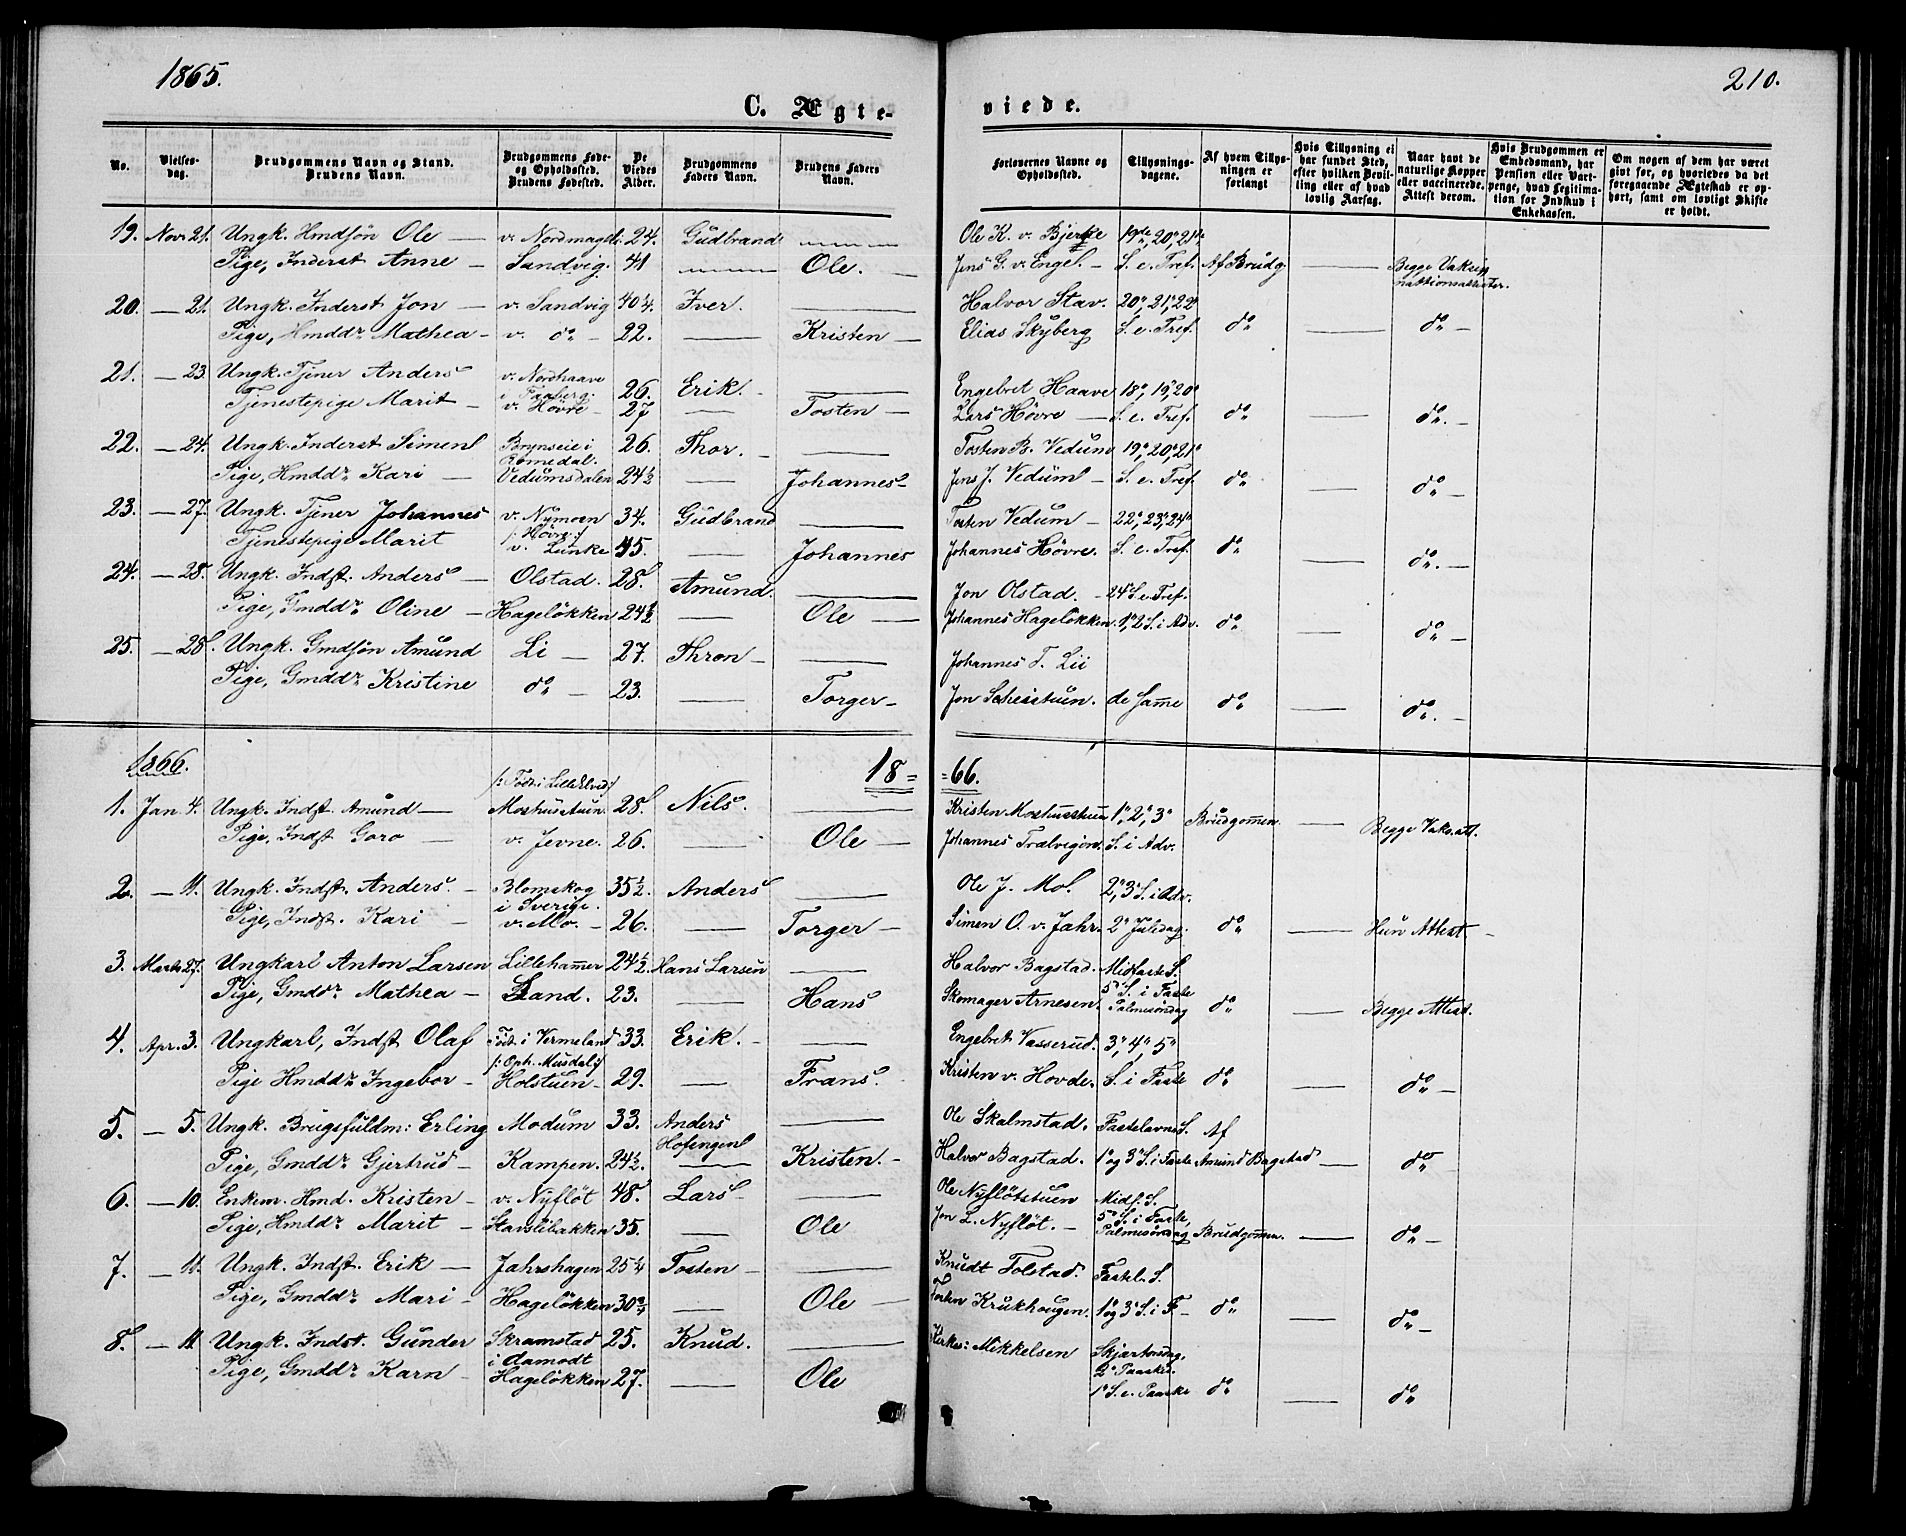 1865.
210.
C. Ægte-
viede.
No.
Vielses-
dag.
Brudgommens Navn og Stand.
Brudens Navn.
Brudgommens Føde-
og Opholdssted.
Brudens Fødested.
De
Viedes
Alder.
Brudgommens
Faders Navn.
Brudens Faders
Navn.
Forlovernes Navne og
Opholdssted.
Tillysnings-
dagene.
Af hvem Tillys-
ningen er
forlangt
Hvis Tillysning ei
har fundet Sted,
efter hvilken Bevil-
ling eller af hvad
lovlig Aarsag.
Naar havt de
naturlige Kopper
eller vaccinerede.
Attest derom.
Hvis Brudgommen er
Embedsmand, har
Pension eller Vart-
penge, hvad Legitima-
tion for Indskud i
Enkekassen.
Om nogen af dem har været
givt før, og hvorledes da det
foregaaende Ægteskab er op-
hørt, samt om lovligt Skifte
er holdt.
19. Nov. 21. Ungk. Hmdsön Ole — v. Nordmageli 24. Gudbrand — Ole K. v. Bjerke 19de, 20", 21de
Pige, Inderst Anne — Sandvig. 41 — Ole. — Jens G. v. Engel. — S. e. Tref. Af Brudg. — Begge Vaksi-
nationsattester.
20. — 21. Ungk. Inderst Jon — v. Sandvig 40 1/4. Iver. — Halvor Stav. 20", 21", 22"
Pige, Hmddr. Mathea — v. do — 22. — Kristen — Elias Skyberg S. e. Tref. do — do —
21. — 23. Ungk. Tjener Anders v. Nordhaave
i Faaberg. 26. Erik. — Engebret Haave 18", 19", 20"
Tjenestepige Marit — v. Hövre — 27 — Tosten — Lars Hövre — S. e. Tref. do — do. —
22. — 24. Ungk. Inderst Simen Brynseie i
Romedal. 26. Thor. — Tosten B. Vedum 19", 20", 21"
Pige, Hmddr. Kari — Vedumsdalen 24 1/2 — Johannes — Jens J. Vedum — S. e. Tref. do — do —
23. — 27. Ungk. Tjener Johannes v. Nymoen
/: Hövre :/ 34. Gudbrand — Tosten Vedum — 22", 23", 24"
Tjenestepige Marit v. Lunke 45. — Johannes Johannes Hövre. S. e. Tref. do — do. —
24. — 28. Ungk. Indst. Anders — Olstad. 28. Amund. — Jon Olstad. — 24" S. e. Tref.
Pige, Gmddr. Oline — Hagelökken 24 1/2 — Ole — Johannes Hagelökken. 1", 2" S. i Adv. do — do —
25. — 28. Ungk. Gmdsön Amund Li — 27. Thron — Johannes T. Lii
Pige, Gmddr. Kristine do — 23. — Torger — Jon Scheistuen. de samme do — do. —
1866.
18= =66.
1. Jan. 4. Ungk. Indst. Amund — Moshusstuen. 28. Nils. — Kristen Moshusstuen 1", 2", 3"
Pige, Indst Goro — v. Jevne. 26. — Ole — Johannes S. i Adv. Brudgommen. — Begge Vaks.att.
2. — 11. Ungk. Indst. Anders. — Blomskog
i Sverige. 35 1/2. Anders — Ole J. Mo. 2", 3" S. i Adv.
Pige, Indst. Kari — v. Mo. — 26. — Torger — Simen O. v. Jahr. 2" Juledag. do — Hun Attest. —
3. Marts 27. Ungkarl Anton Larsen Lillehamer 24 1/2. Hans Larsen — Halvor Bagstad. Midfaste S.
Pige, Gmddr. Mathea — Sand. 23. — Hans Skomager Arnesen. 5" S. i Faste
Palmesöndag do — Begge Attest.
4. Apr. 3. Ungkarl, Indst Olaf Föd. i Vermeland
/: Oph. Musdal :/ 33. Erik. — Engebret Vasserud. 3", 4", 5"
Pige Hmddr. Ingebor — Holstuen — 29. — Frans. Kristen v. Hovde. S. i Faste do — do —
5. — 5. Ungk. Brugsfuldm: Erling Modum 33. Anders
Hofengen — Ole Skalmstad. Fastelavns S. Af
Pige, Gmddr. Gjertrud — Kampen. 24 1/2. — Kristen. — Halvor Bagstad. 1" og 3" S. i Faste Amund Bagstad — do
6. — 10. Enkem. Hmd. Kristen — v. Nyflöt 48. Lars — Ole Nyflötstuen Midf. S.
Pige, Hmddr. Marit — Stavslibakken 35. — Ole Jon L. Nyflöt. — 5" S. i Faste,
Palmesöndag Brudgommen. — do —
7. — 11. Ungk. Indst. Erik — Jahrshagen 25 1/4 Tosten — Knudt Tolstad. Fastel. S.
Pige, Gmddr. Mari — Hagelökken 30 3/4 — Ole — Tosten Krukhougen. 1" og 3" S. i F — do — do —
8. — 11. Ungk. Indst. Gunder Skramstad
i Aamodt 25. Knud. — Mikkelsen Skjærtorsdag.
2" Paasked.
Pige, Gmddr. Karn — Hagelökken 27. — Ole 1" S. e. Paaske do — do